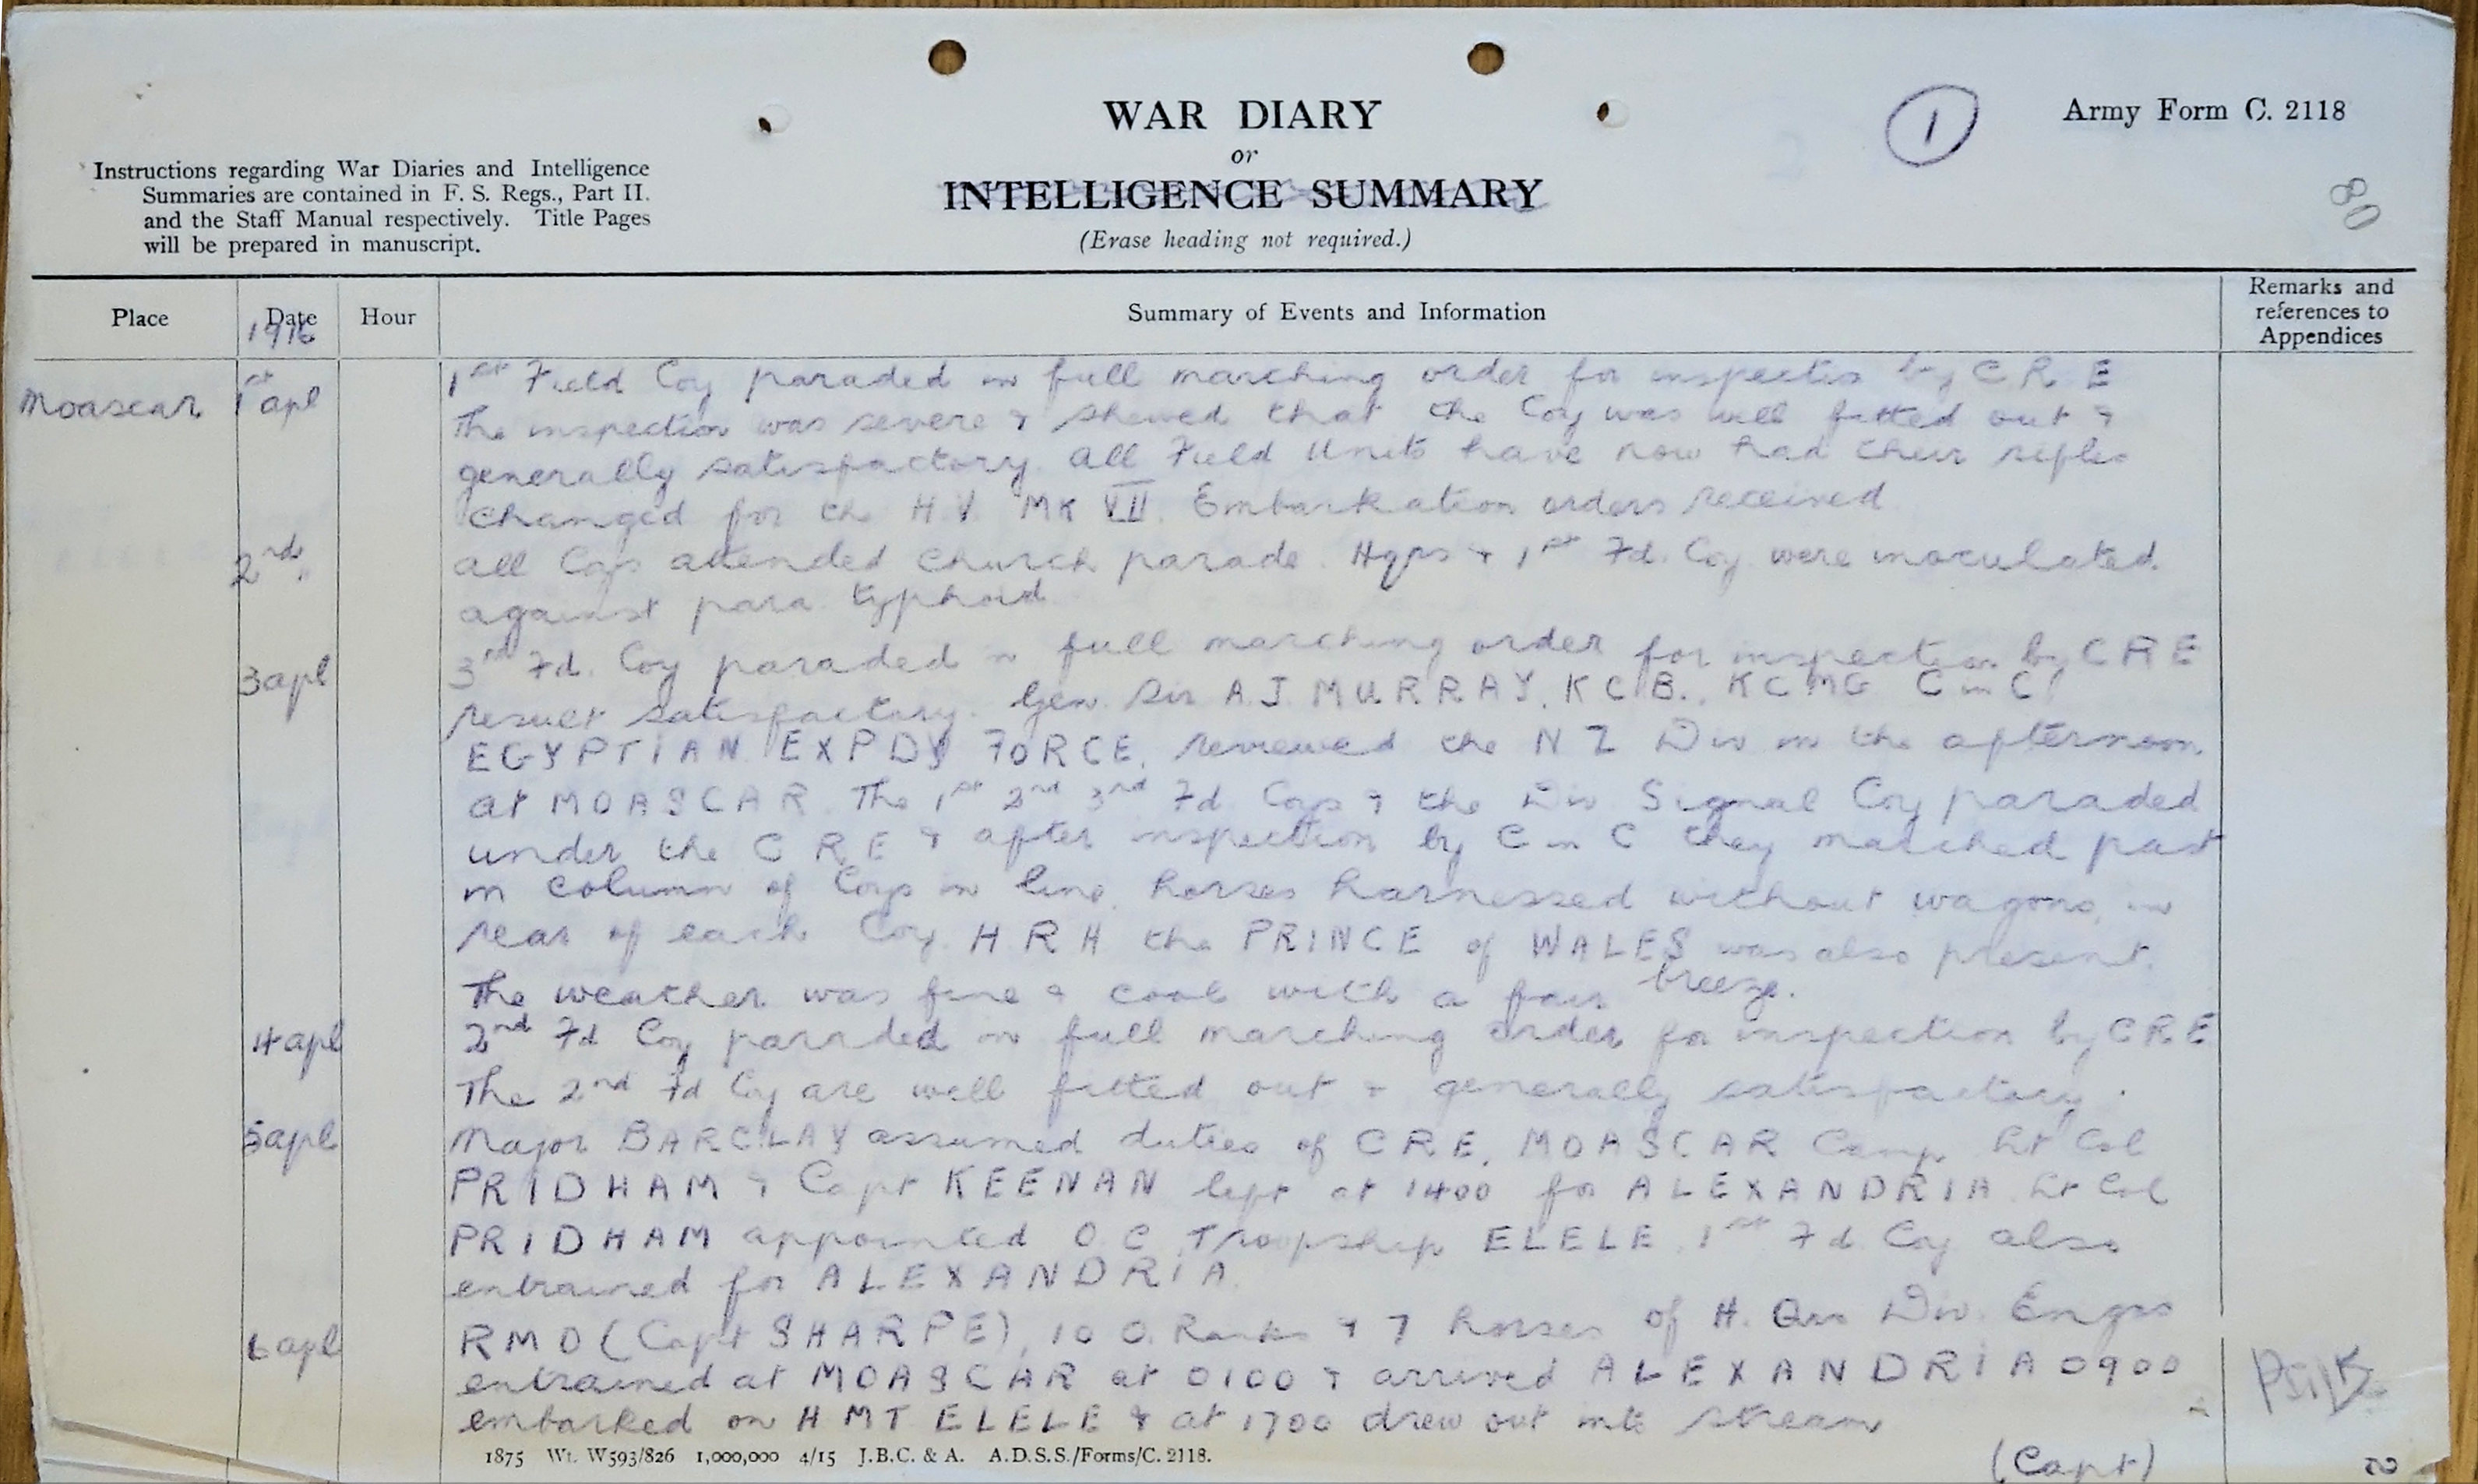 WAR DIARY
or
INTELLIGENCE SUMMARY
(Erase heading not required.)
1
Army Form C. 2118
80
Instructions regarding War Diaries and Intelligence
Summaries are contained in F. S. Regs., Part II.
and the Staff Manual respectively. Title Pages
will be prepared in manuscript.
Place
Date
1916
Hour
Summary of Events and Information
Remarks and
references to
Appendices
Moascar 1st apl 1st Field Coy paraded in full marching order for inspection by C R E
The inspection was severe & shewed that the Coy was well fitted out &
generally satisfactory. All Field Units have now had their rifles
changed for the H.V. MK VII. Embarkation orders received
2nd. all Coys attended church parade. Hqrs & 1st Fd. Coy were inoculated
against para typhoid
3 apl 3rd Fd. Coy paraded in full marching order for inspection by C R E
result satisfactory. Gen. Sir A.J. MURRAY, KCB., KCMG C in C
EGYPTIAN EXPDY FORCE, reviewed the N Z Div in the afternoon
at MOASCAR. The 1st 2nd 3rd Fd Coys & the Div Signal Coy paraded
under the C R E & after inspection by C in C they marched past
in column of Coys in line, horses harnessed without wagons, in
rear of each Coy. H R H the PRINCE of WALES was also present.
The weather was fine & cool with a fair breeze.
4 apl 2nd Fd Coy parrded in full marching order for inspection by C R E
The 2nd Fd Coy are well fitted out & generally satisfactory.
5 apl Major BARCLAY assumed duties of C R E, MOASCAR Camp Lt Col
PRIDHAM & Capt KEENAN left at 1400 for ALEXANDRIA Lt Col
PRIDHAM appointed O.C. Troopship ELELE. 1st Fd Coy also
entrained for ALEXANDRIA.
6 apl R M O (Capt SHARPE), 10 O. Ranks & 7 horses of H. Qrs Div. Engrs
entrained at MOASCAR at 0100 & arrived ALEXANDRIA 0900
embarked on H M T ELELE & at 1700 drew out into stream
1875 Wt. W593/826 1,000,000 4/15 J.B.C. & A. A.D.S.S./Forms/C. 2118.
(Capt)